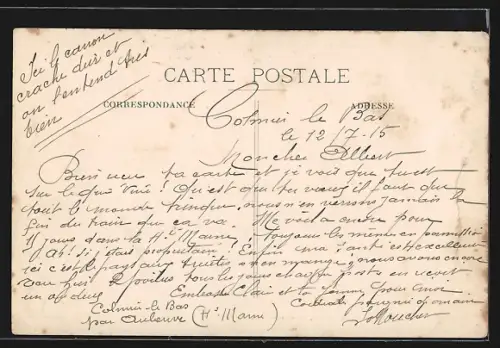 Ici le canon
crache dur et
on l'entend très
bien
CARTE POSTALE
CORRESPONDANCE
ADRESSE
Colmier le Bas
le 12/7-15
Mon cher Albert
Bien reçu ta carte et je vois que tu est
sur le qui vive! Qu'est que tu veux il faut que
tout le monde trinque, nous n'en verrons jamais la
fin du train que ça va. Me voici encore pour
11 jours dans la Hte Marne, toujours le même en permission
Ah! Si j'étais propriétaire! Enfin ma santé est excellente
ici c'est le pays aux truites on en mange, nous avons encore
tous les jours
Embrasse Clair et ta femme pour moi
Colmier-le-Bas
par Auberive (Hte Marne)